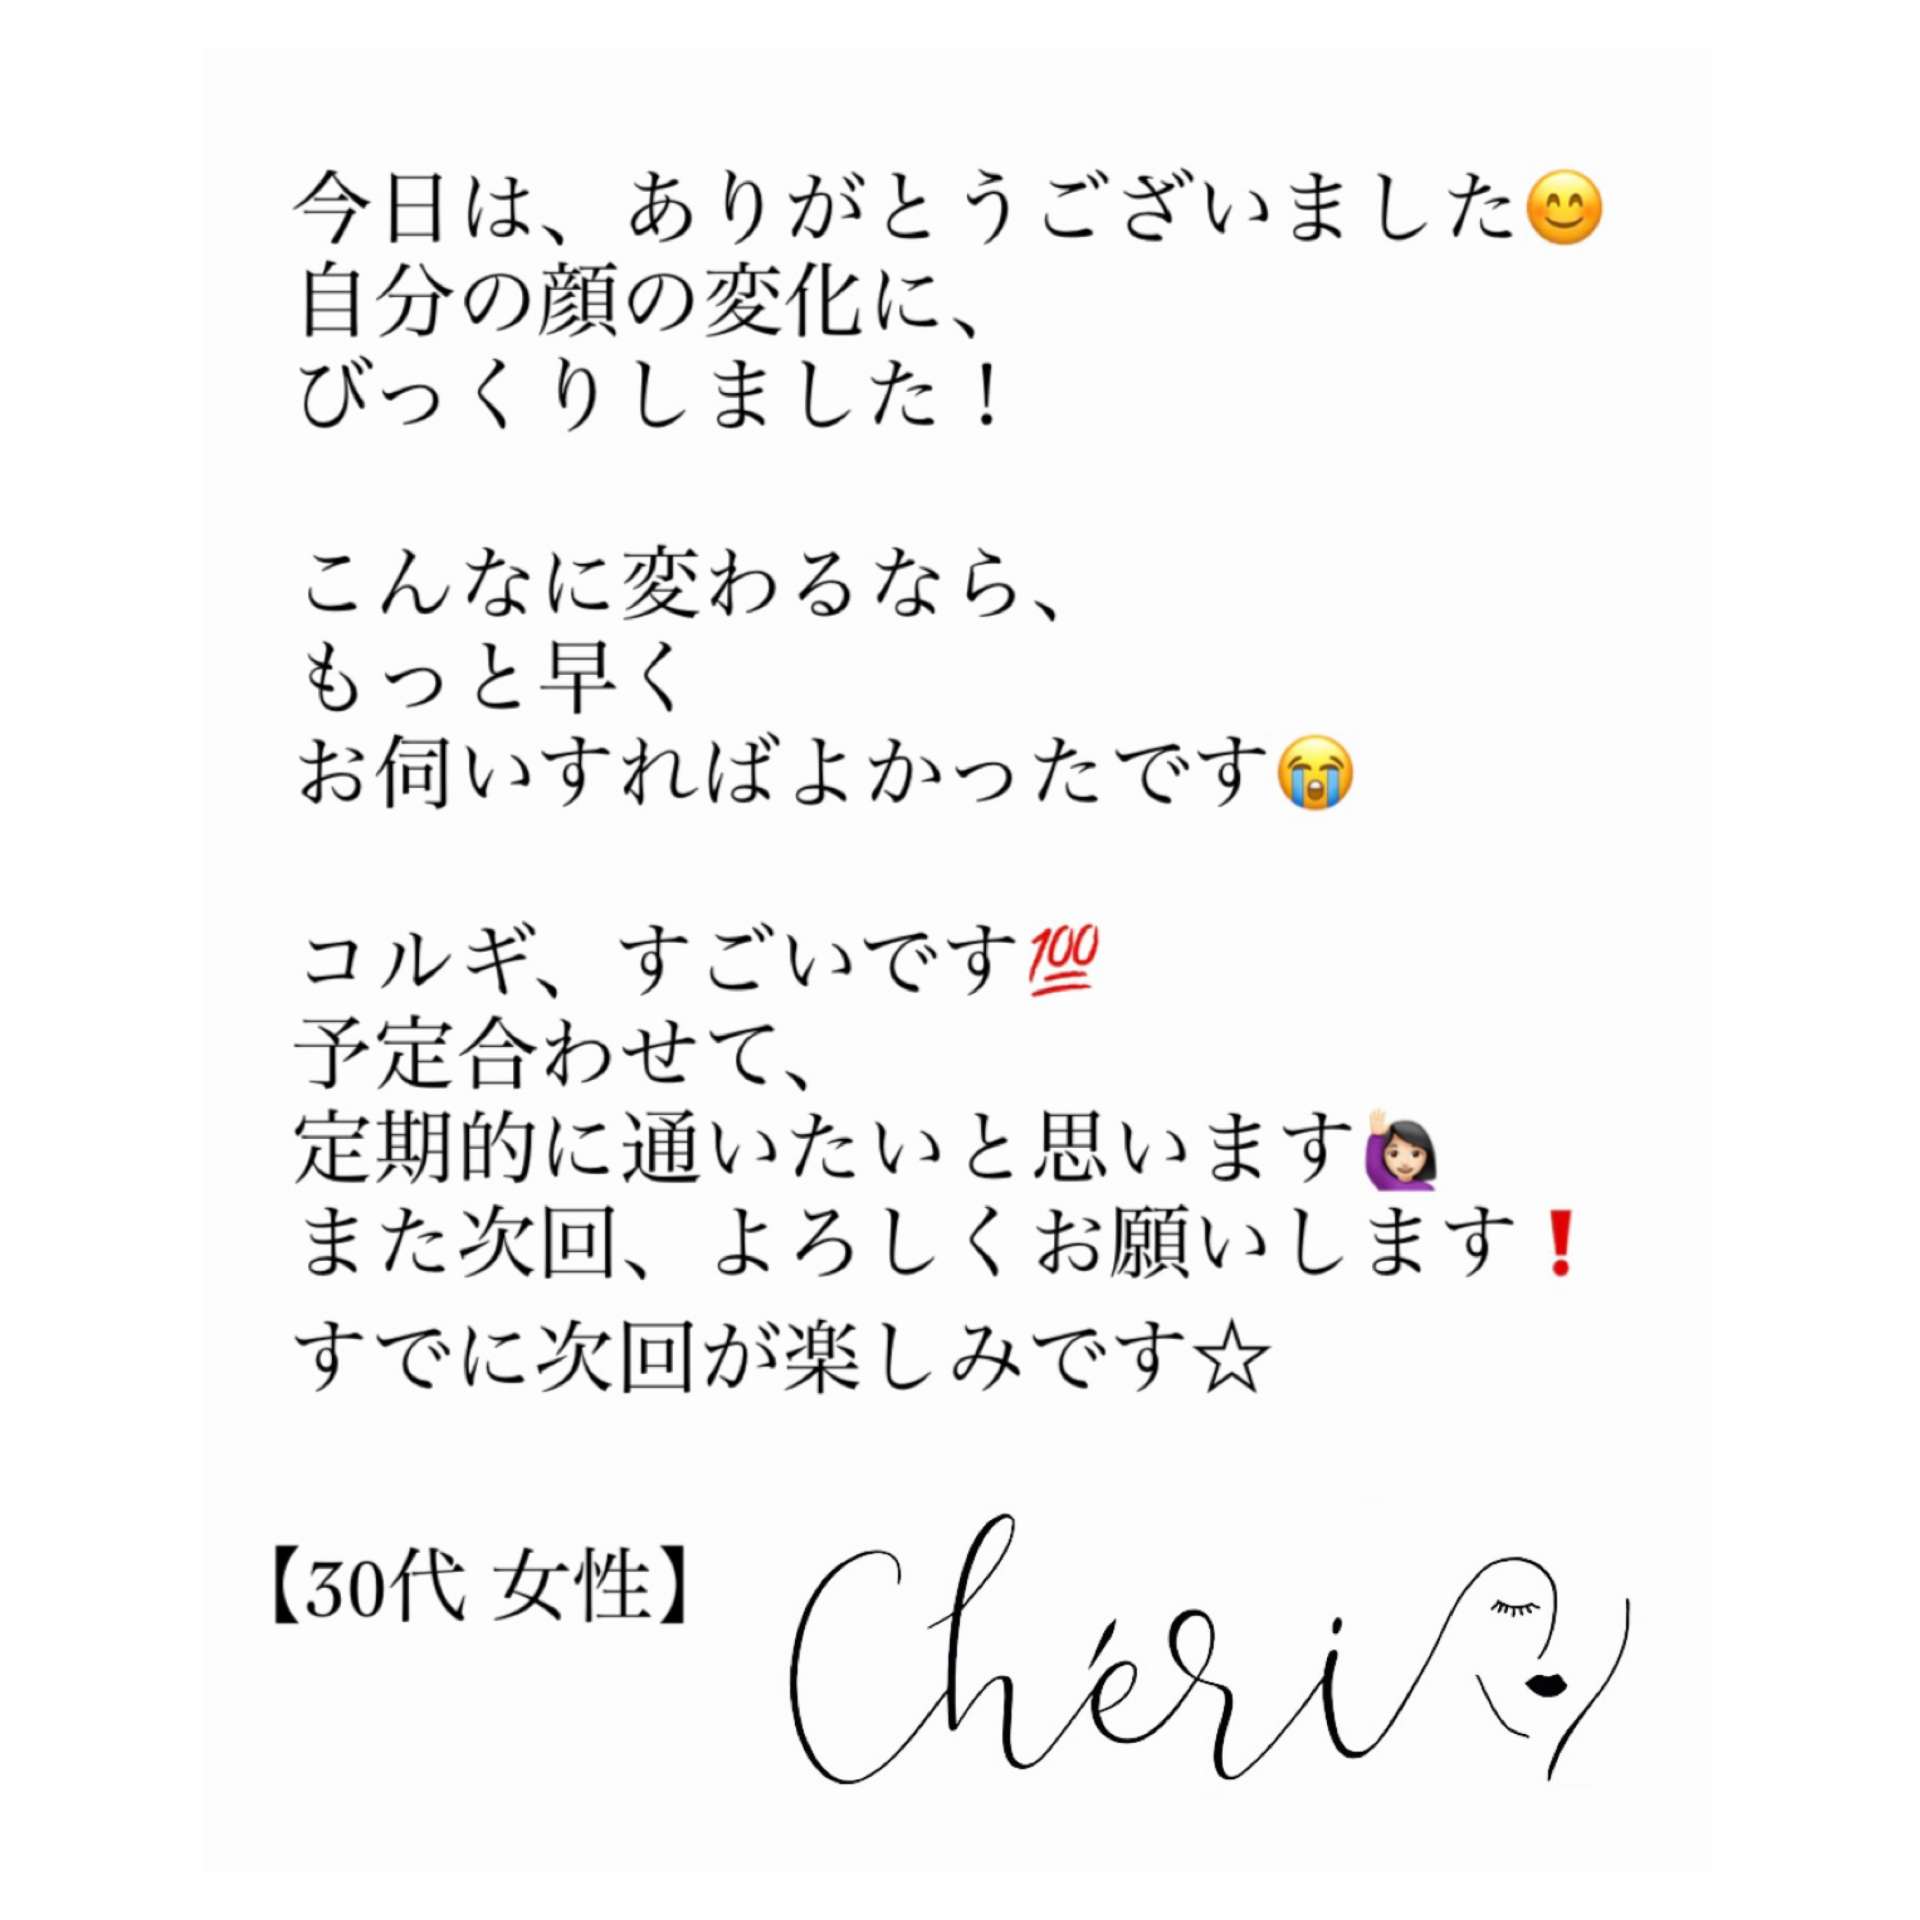 今日は、ありがとうございました😊
自分の顔の変化に、
びっくりしました！
こんなに変わるなら、
もっと早く
お伺いすればよかったです😭
コルギ、すごいです💯
予定合わせて、
定期的に通いたいと思います🙋🏻‍♀️
また次回、よろしくお願いします❗
すでに次回が楽しみです☆
【30代 女性】
Chéri